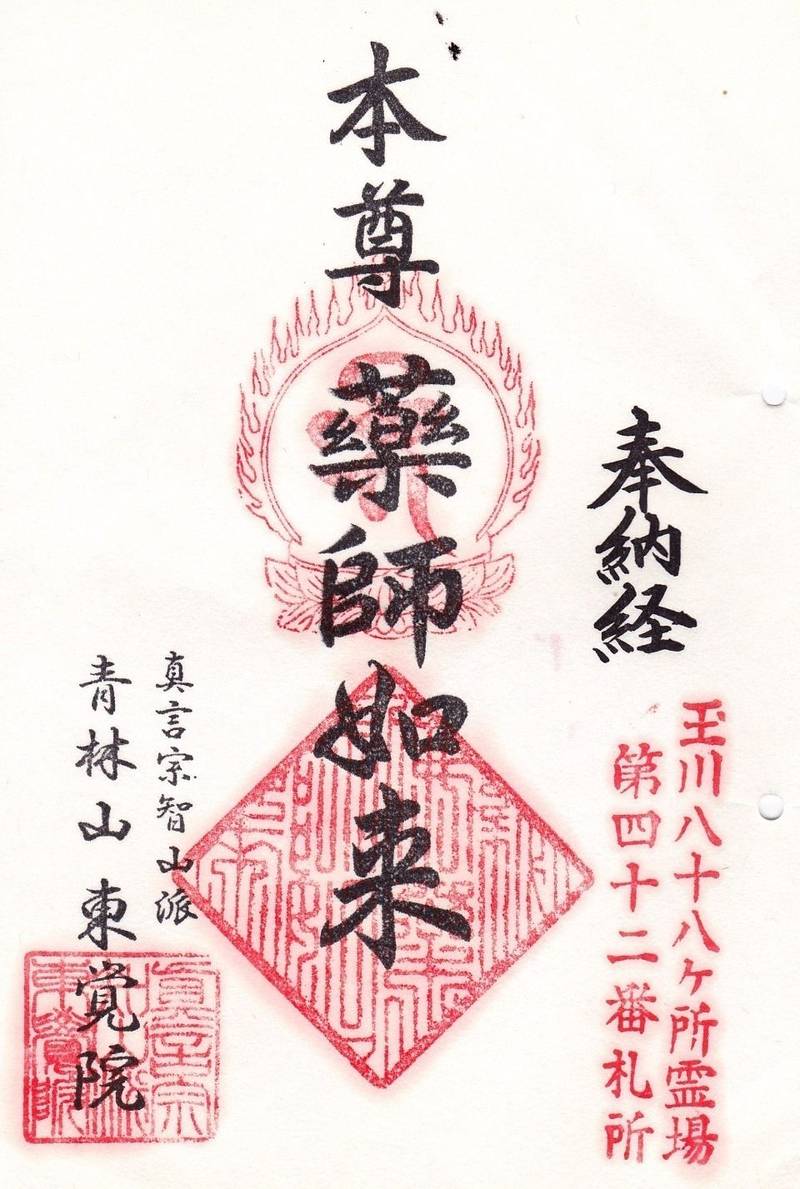 奉納経
玉川八十八ケ所霊場
第四十二番札所
本尊
薬師如来
真言宗智山派
青林山東覚院